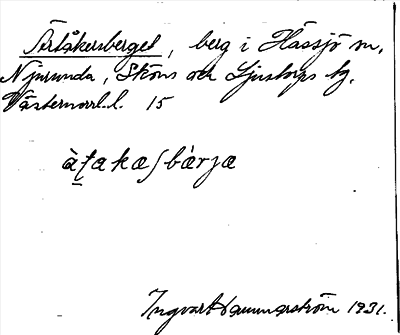 Ärtåkersberget, berg i Hässjö sn.
Njurunda, Sköns och Ljustorps tg.
Västernorrl. l. 15
àṱakæʃbàrjæ
Ingvar Hammarström 1931.